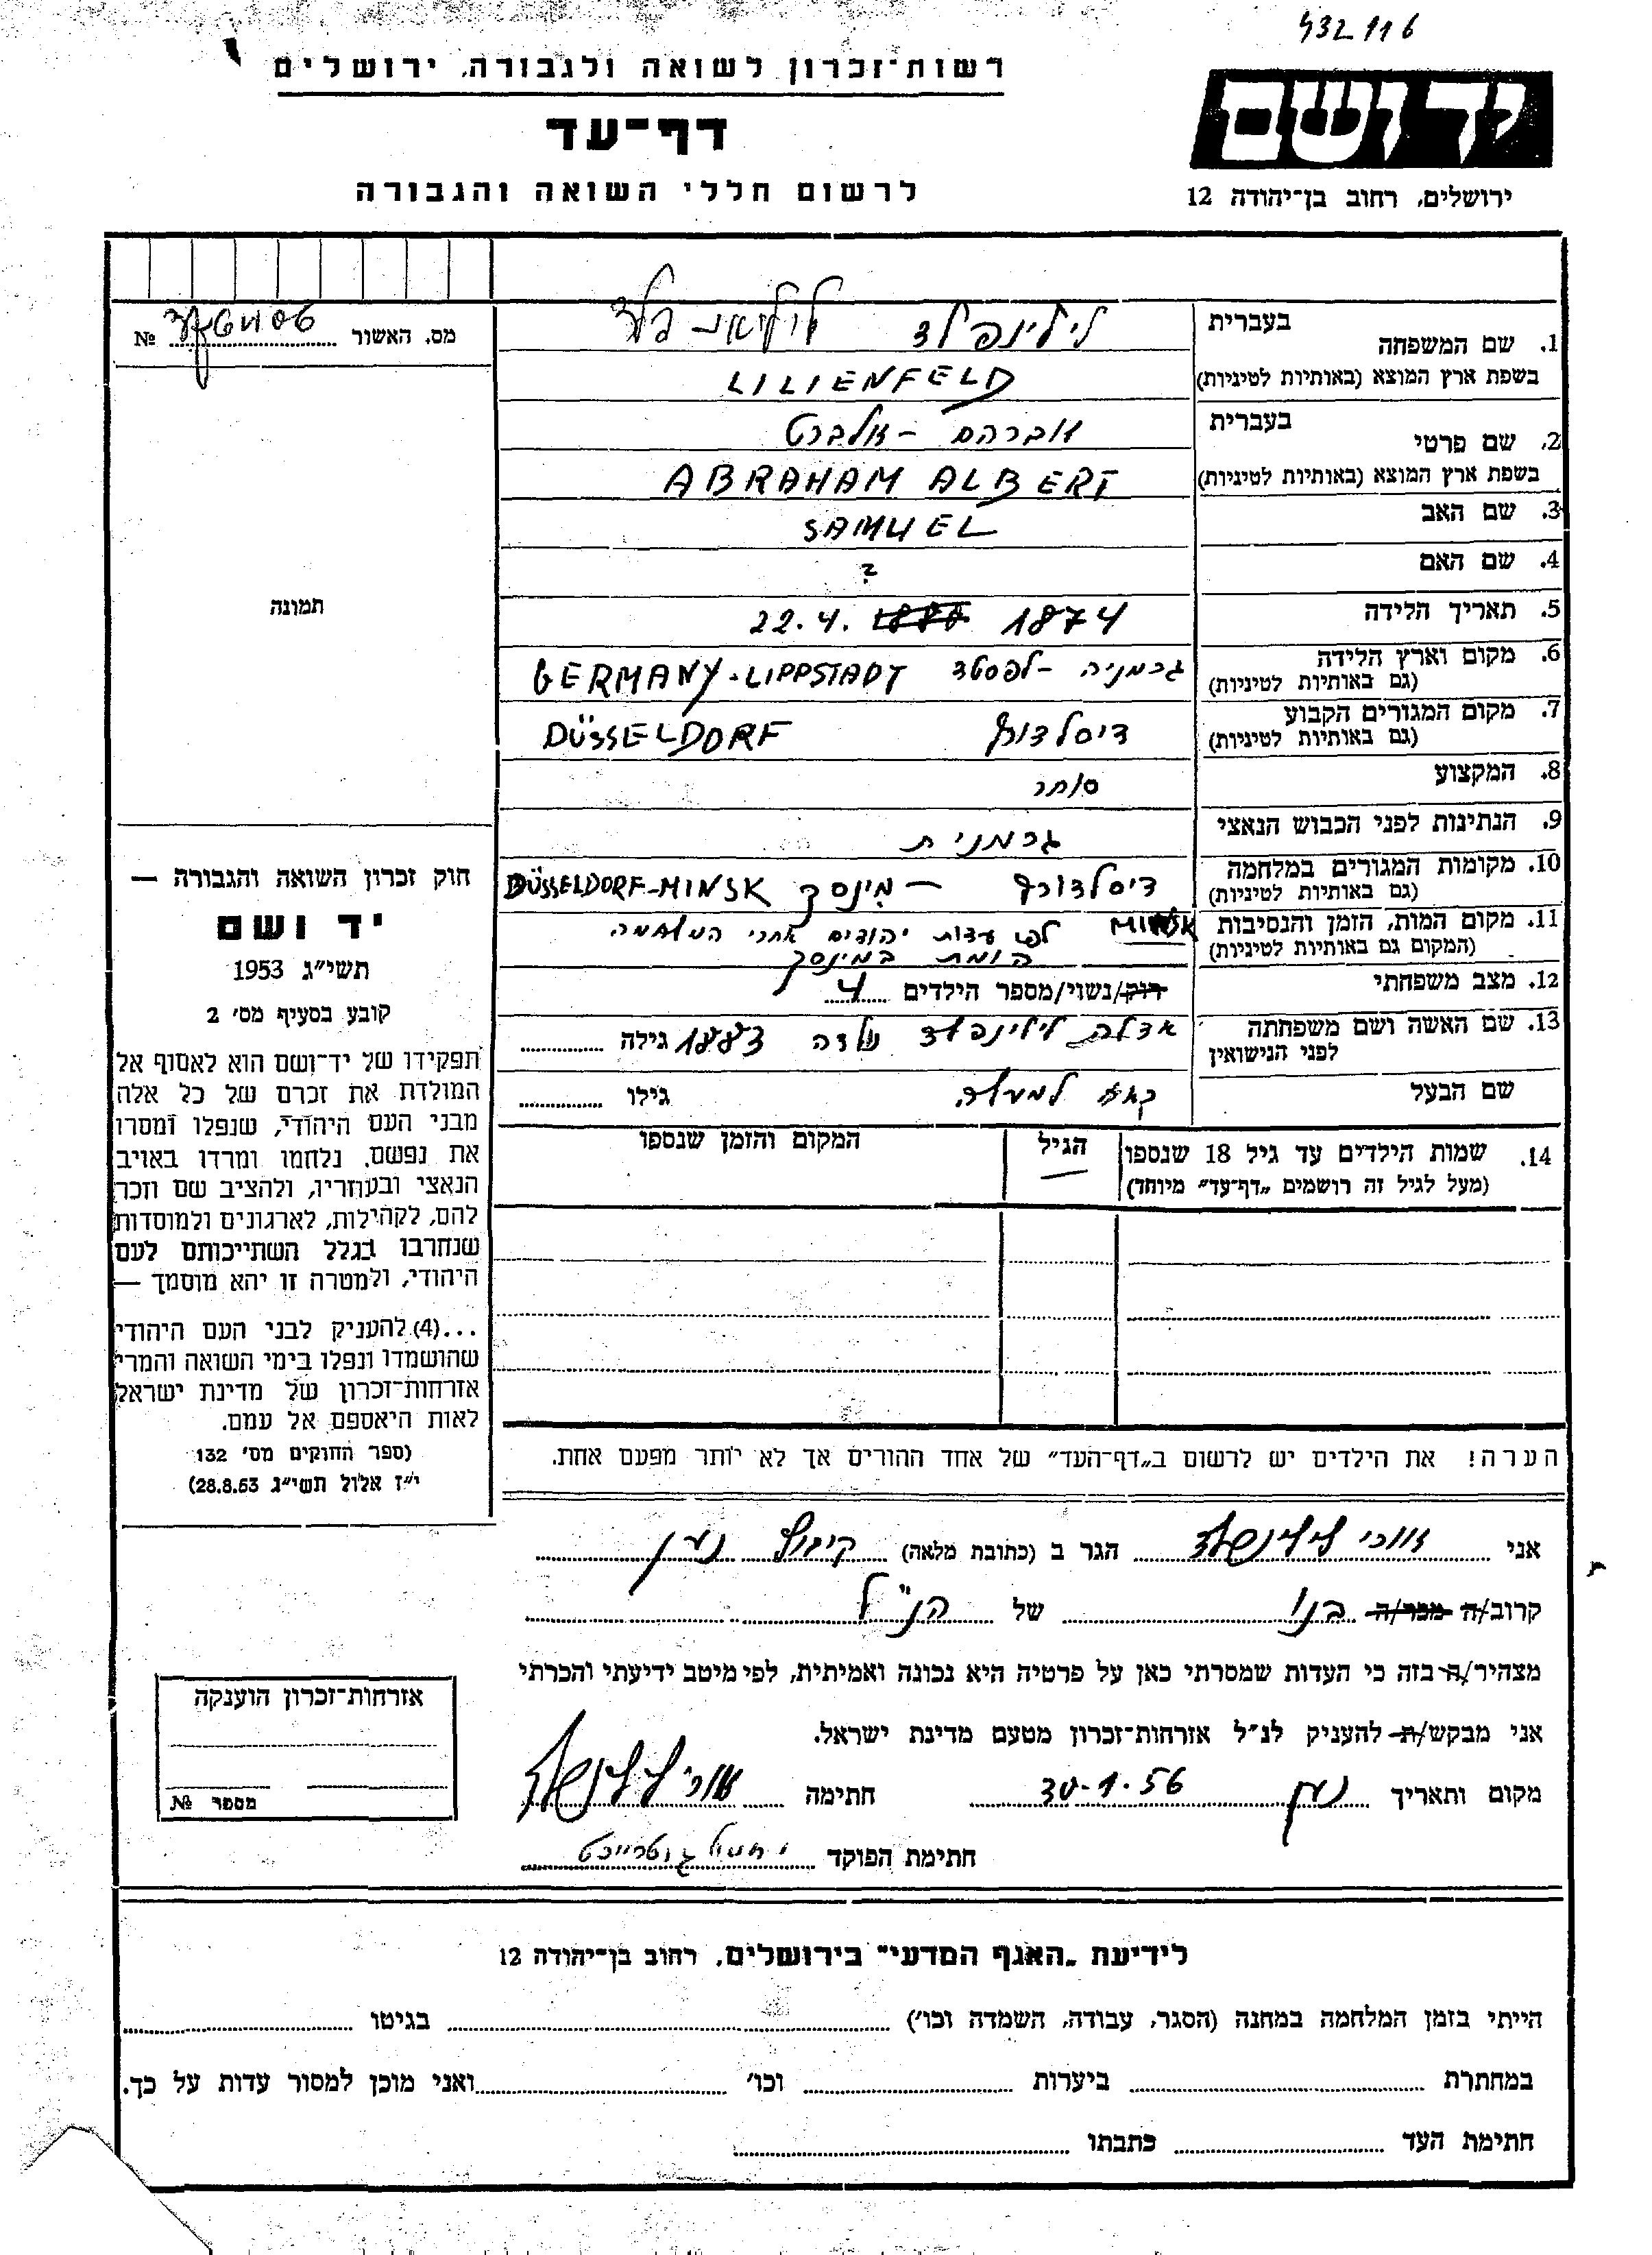 432116
רשות־זכרון לשואה ולגבורה, ירושלים
דף־עד
לרשום חללי השואה והגבורה
יד ושם
ירושלים, רחוב בן־יהודה 12
מס. האשור №
1. שם המשפחה
בעברית
לילינפלד
בשפת ארץ המוצא (באותיות לטיניות)
LILIENFELD
2. שם פרטי
בעברית
אברהם - אלברט
בשפת ארץ המוצא (באותיות לטיניות)
ABRAHAM ALBERT
3. שם האב
SAMUEL
4. שם האם
?
5. תאריך הלידה
22.4. 1874
6. מקום וארץ הלידה
(גם באותיות לטיניות)
גרמניה - לפסטד GERMANY-LIPPSTADT
7. מקום המגורים הקבוע
(גם באותיות לטיניות)
דיסלדורף DÜSSELDORF
8. המקצוע
סוחר
9. הנתינות לפני הכבוש הנאצי
גרמנית
10. מקומות המגורים במלחמה
(גם באותיות לטיניות)
דיסלדורף - מינסק DÜSSELDORF-MINSK
11. מקום המות, הזמן והנסיבות
(המקום גם באותיות לטיניות)
MINSK לפי עדות יהודים אחרי המלחמה
הומת במינסק
12. מצב משפחתי
רוק/נשוי/מספר הילדים 4
13. שם האשה ושם משפחתה
לפני הנישואין
אדלה לילינפלד נולדה 1883 גילה
שם הבעל
גילו
14. שמות הילדים עד גיל 18 שנספו
(מעל לגיל זה רושמים „דף־עד" מיוחד)
הגיל
המקום והזמן שנספו
תמונה
חוק זכרון השואה והגבורה —
יד ושם
תשי"ג 1953
קובע בסעיף מס' 2
תפקידו של יד־ושם הוא לאסוף אל
המולדת את זכרם של כל אלה
מבני העם היהודי, שנפלו ומסרו
את נפשם, נלחמו ומרדו באויב
הנאצי ובעוזריו, ולהציב שם וזכר
להם, לקהילות, לארגונים ולמוסדות
שנחרבו בגלל השתייכותם לעם
היהודי, ולמטרה זו יהא מוסמך —
...(4) להעניק לבני העם היהודי
שהושמדו ונפלו בימי השואה והמרי
אזרחות־זכרון של מדינת ישראל
לאות היאספם אל עמם.
(ספר החוקים מס' 132
י"ז אלול תשי"ג 28.8.53)
הערה! את הילדים יש לרשום ב„דף־העד" של אחד ההורים אך לא יותר מפעם אחת.
אני אורי לילינפלד הגר ב (כתובת מלאה) קיבוץ נען
קרוב/ה מכר/ה בנו של הנ"ל
מצהיר/ה בזה כי העדות שמסרתי כאן על פרטיה היא נכונה ואמיתית, לפי מיטב ידיעתי והכרתי
אני מבקש/ת להעניק לנ"ל אזרחות־זכרון מטעם מדינת ישראל.
מקום ותאריך נען 30-1-56 חתימה אורי לילינפלד
חתימת הפוקד
אזרחות־זכרון הוענקה
מספר №
לידיעת „האגף המדעי" בירושלים, רחוב בן־יהודה 12
הייתי בזמן המלחמה במחנה (הסגר, עבודה, השמדה וכו') בגיטו
במחתרת ביערות וכו' ואני מוכן למסור עדות על כך.
חתימת העד כתבתו